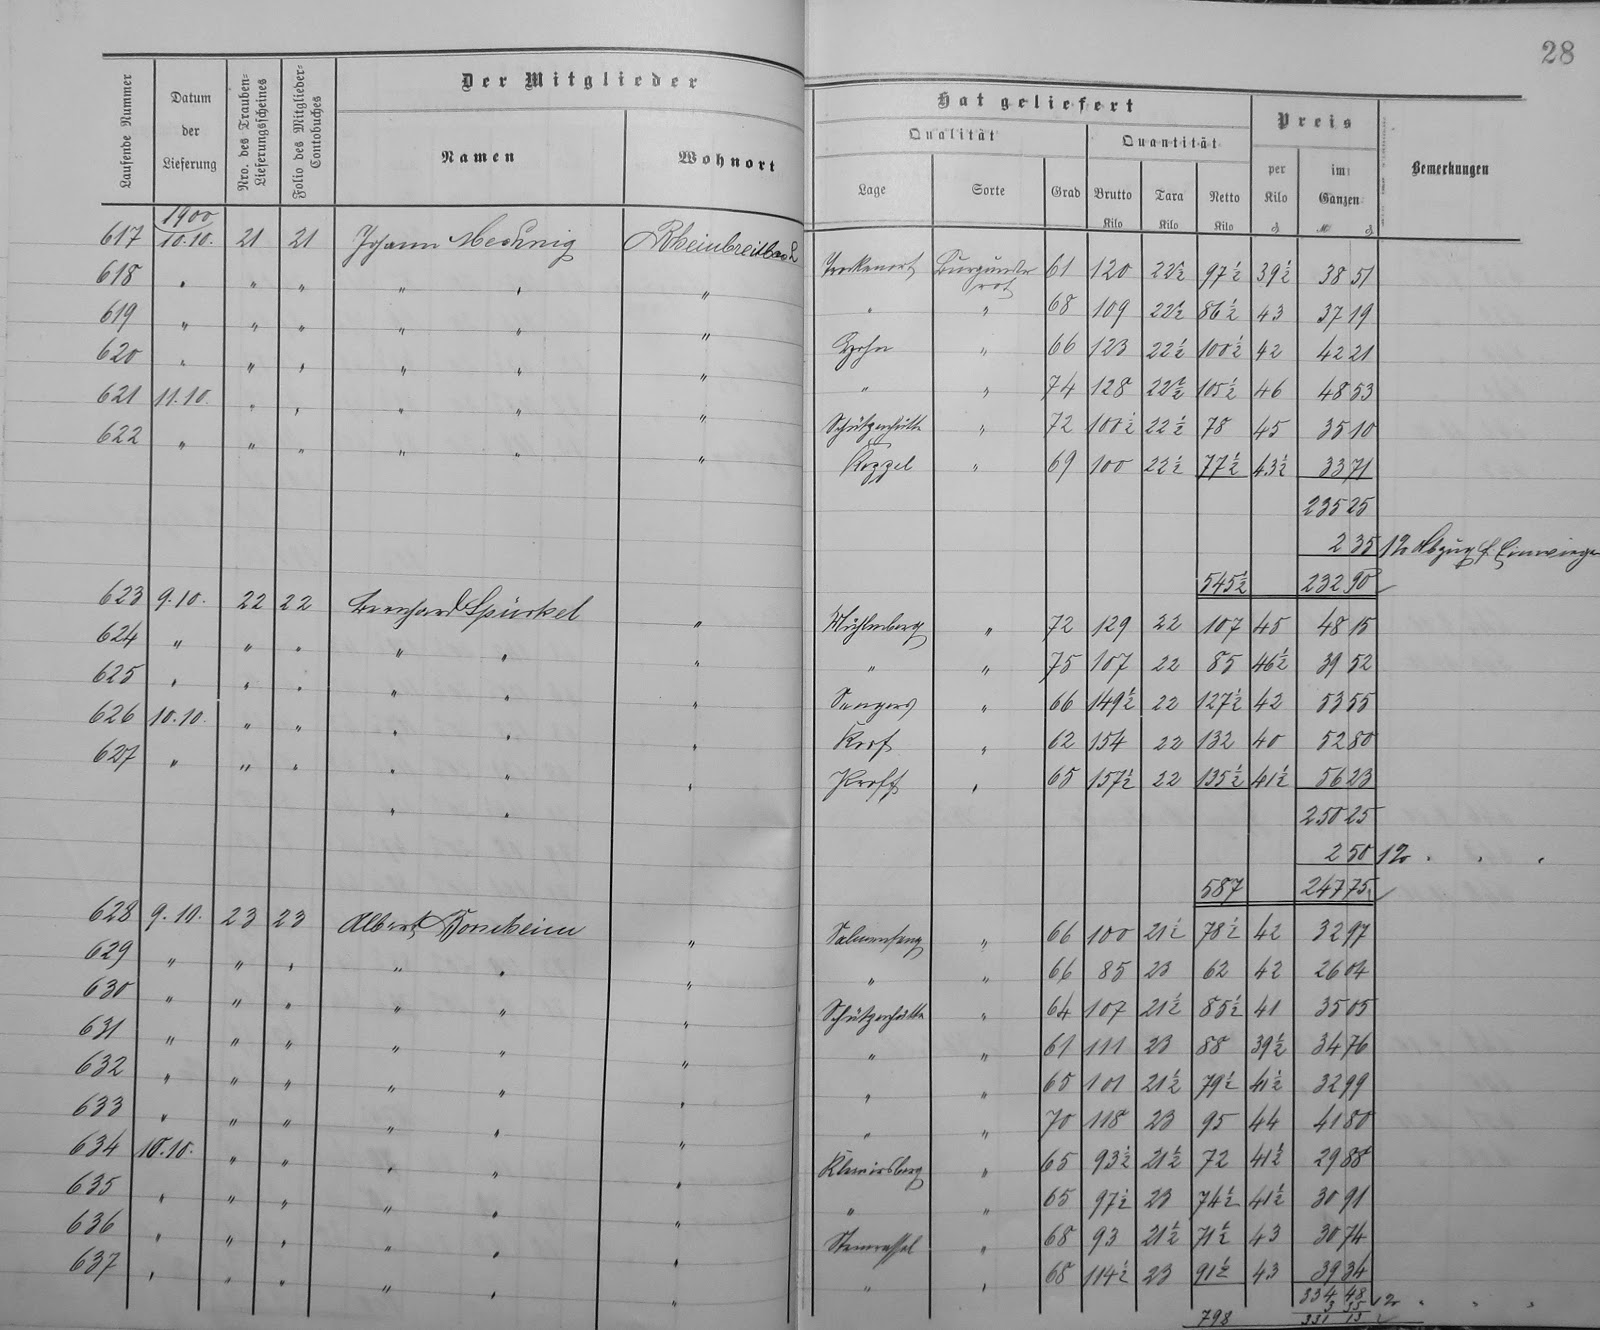 28
Der Mitglieder
Hat geliefert
Laufende Nummer Datum der Lieferung Nro. des Trauben-Lieferungsscheines Folio des Mitglieder-Contobuches Namen Wohnort Qualität Quantität Preis Bemerkungen
Lage Sorte Grad Brutto Kilo Tara Kilo Netto Kilo per Kilo im Ganzen
1900
617 10.10. 21 21 Johann Rheinbreitbach Burgunder rot 61 120 22½ 97½ 39½ 38 51
618 " " " " " " " " 68 109 22½ 86½ 43 37 19
619 " " " " " " " 66 123 22½ 100½ 42 42 21
620 " " " " " " " " 74 128 22½ 105½ 46 48 53
621 11.10. " " " " " Schützenhütte " 72 100½ 22½ 78 45 35 10
622 " " " " " " Koppel " 69 100 22½ 77½ 43½ 33 71
235 25
2 35 1% Abzug f.
545½ 232 90
623 9.10. 22 22 Bernhard Spürkel " Mühlenberg " 72 129 22 107 45 48 15
624 " " " " " " " " 75 107 22 85 46½ 39 52
625 " " " " " " " 66 149½ 22 127½ 42 53 55
626 10.10. " " " " " " 62 154 22 132 40 52 80
627 " " " " " " " 65 157½ 22 135½ 41½ 56 23
" "
250 25
2 50 1% " " "
587 247 75
628 9.10. 23 23 Albert " " 66 100 21½ 78½ 42 32 97
629 " " " " " " " " 66 85 23 62 42 26 04
630 " " " " " " Schützenhütte " 64 107 21½ 85½ 41 35 05
631 " " " " " " " " 61 111 23 88 39½ 34 76
632 " " " " " " " " 65 101 21½ 79½ 41½ 32 99
633 " " " " " " " " 70 118 23 95 44 41 80
634 10.10. " " " " " " 65 93½ 21½ 72 41½ 29 88
635 " " " " " " " " 65 97½ 23 74½ 41½ 30 91
636 " " " " " " " 68 93 21½ 71½ 43 30 74
637 " " " " " " " " 68 114½ 23 91½ 43 39 34
334 48
3 35 1% " " "
798 331 13